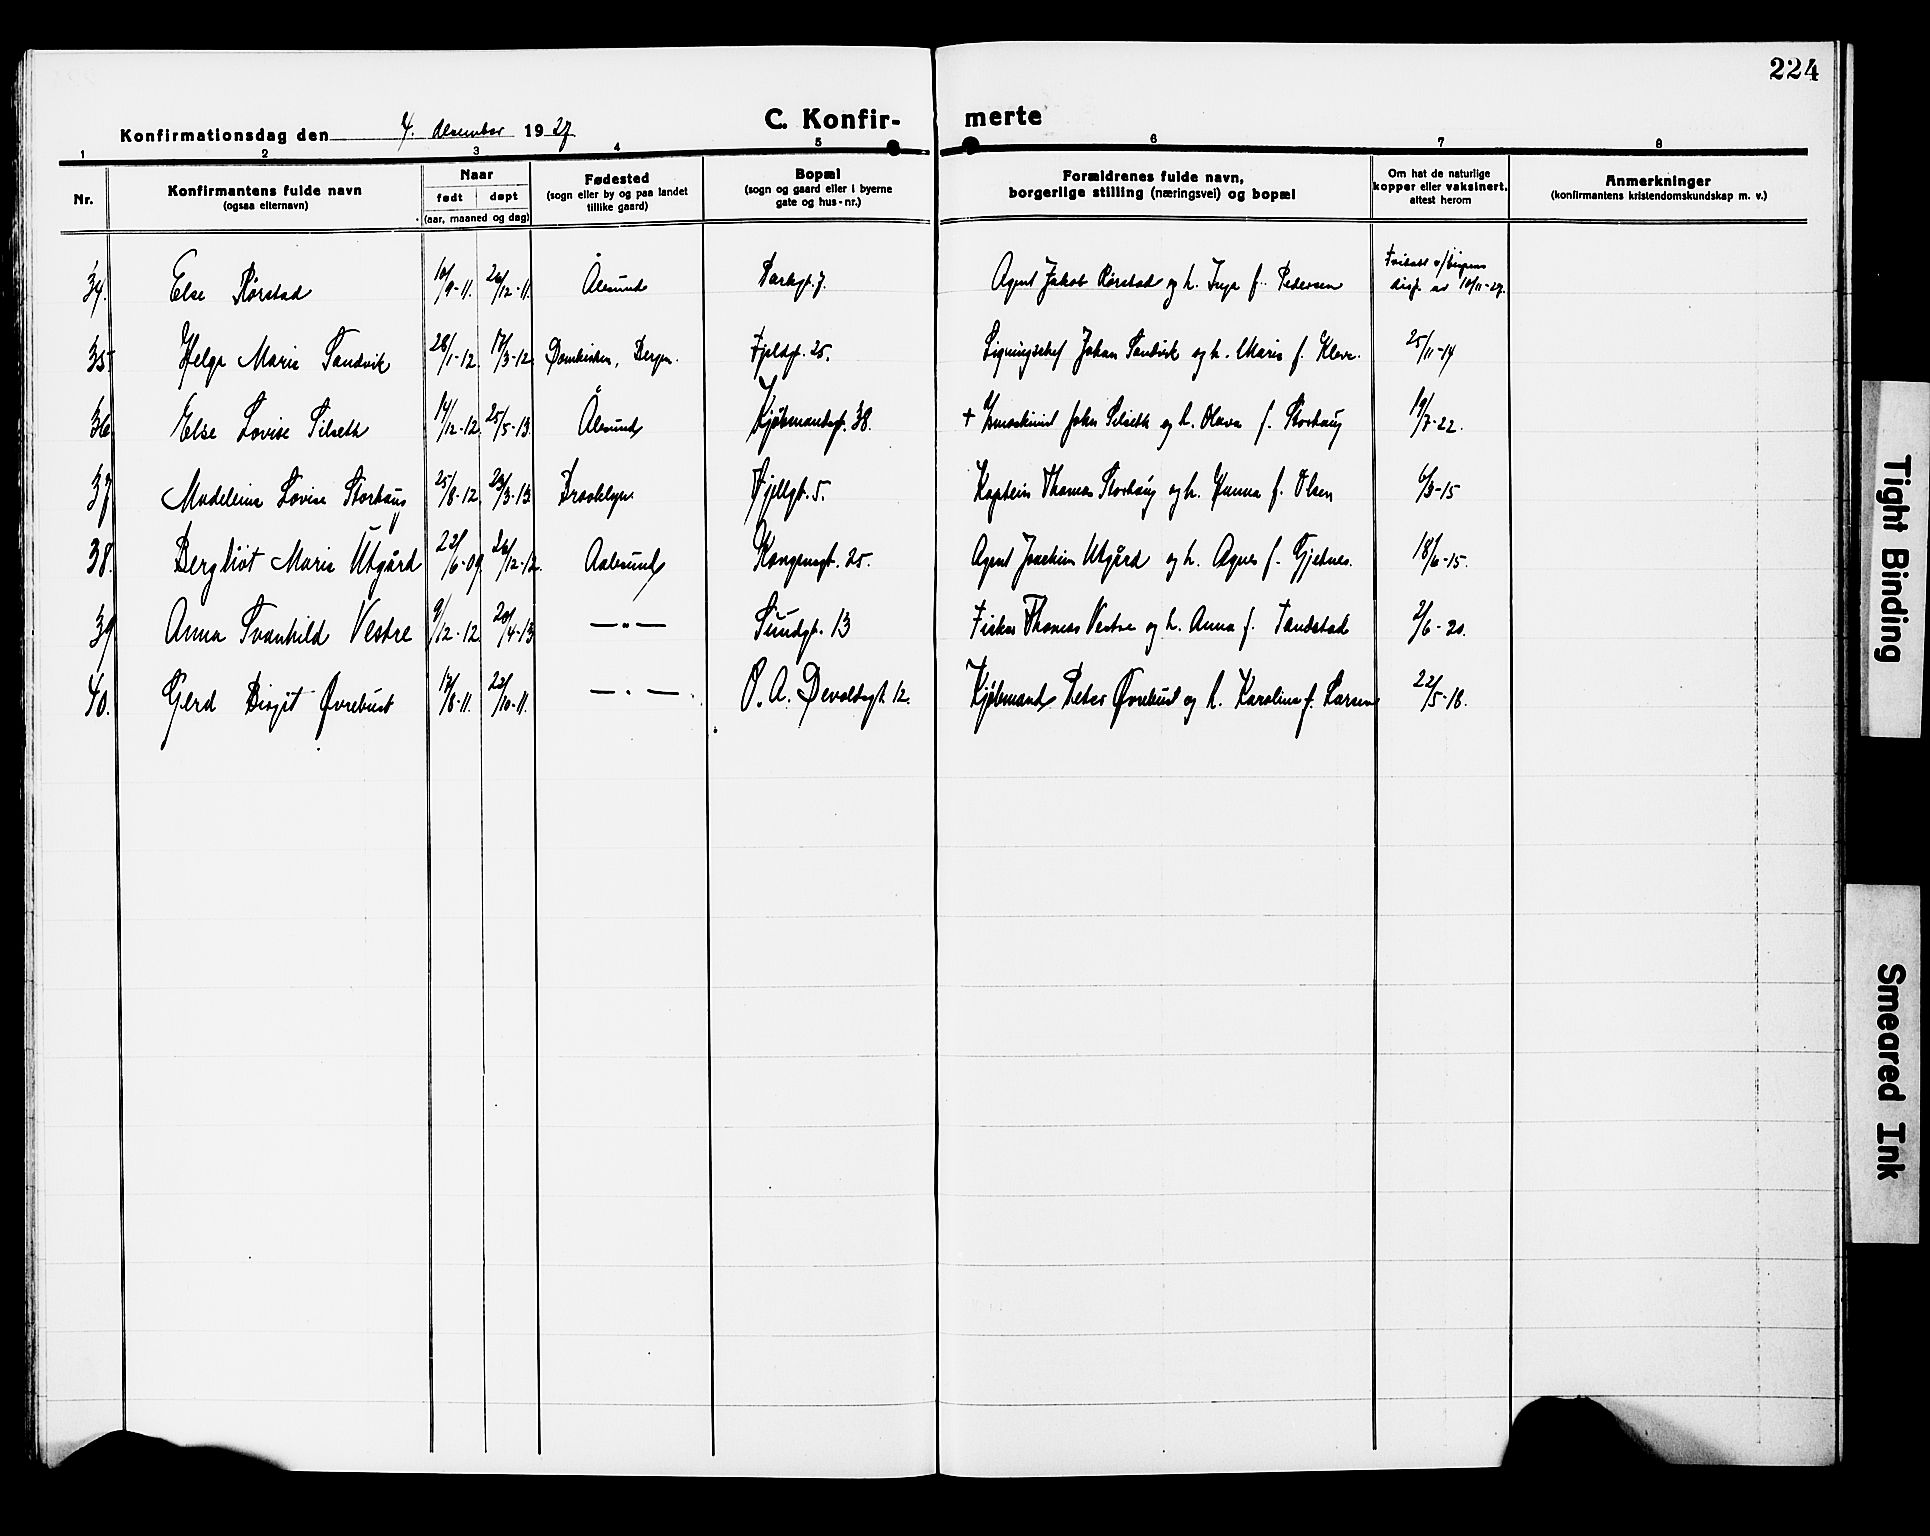 224
Konfirmationsdag den 4. desember 1927 C. Konfir- merte
1 2 3 4 5 6 7 8
Nr. Konfirmantens fulde navn (ogsaa efternavn) Naar født døpt (aar, maaned og dag) Fødested (sogn eller by og paa landet tillike gaard) Bopæl (sogn og gaard eller i byerne gate og hus-nr.) Forældrenes fulde navn, borgerlige stilling (næringsvei) og bopæl Om hat de naturlige kopper eller vaksinert, attest herom Anmerkninger (konfirmantens kristendomskundskap m. v.)
34. Else Rørstad 10/9-11. 26/12-11. Ålesund Parkgt. 7. Agent Jakob Rørstad og h. Inga f. Pedersen
35 Helga Marie Sandvik 28/1-12. 17/3-12. Domkirken, Bergen. Fjeldgt. 25. Ligningschef Johan Sandvik og h. Marie f. 25/11-14
36 Else Lovise Silseth 14/12-12. 25/5-13. Ålesund Kjøbmandsgt. 38. + John Silseth og h. Olava f. Storhaug 19/7-22.
37 Madeleine Lovise Storhaug 25/8-12. 23/3-13 Brooklyn. Fjellgt. 5. Kaptein Thomas Storhaug og h. f. Olsen 6/3-15
38. Bergliot Marie Utgård 22/6-09. 26/12-12. Aalesund Kongensgt. 25. Agent Joachim Utgård og h. Agnes f. Gjetnes. 18/6-15.
39 Anna Svanhild Vestre 9/12-12 20/4-13 —"— Sundgt. 13 Fisker Thomas Vestre og h. Anna f. Tandstad 2/6-20.
40. Gerd Birgit Øvrebust 17/8-11. 22/10-11. —"—. O. A. Devoldsgt. 12. Kjøbmand Peter Øvrebust og h. Karoline f. Larsen 22/5-18.
Tight Binding
Smeared Ink